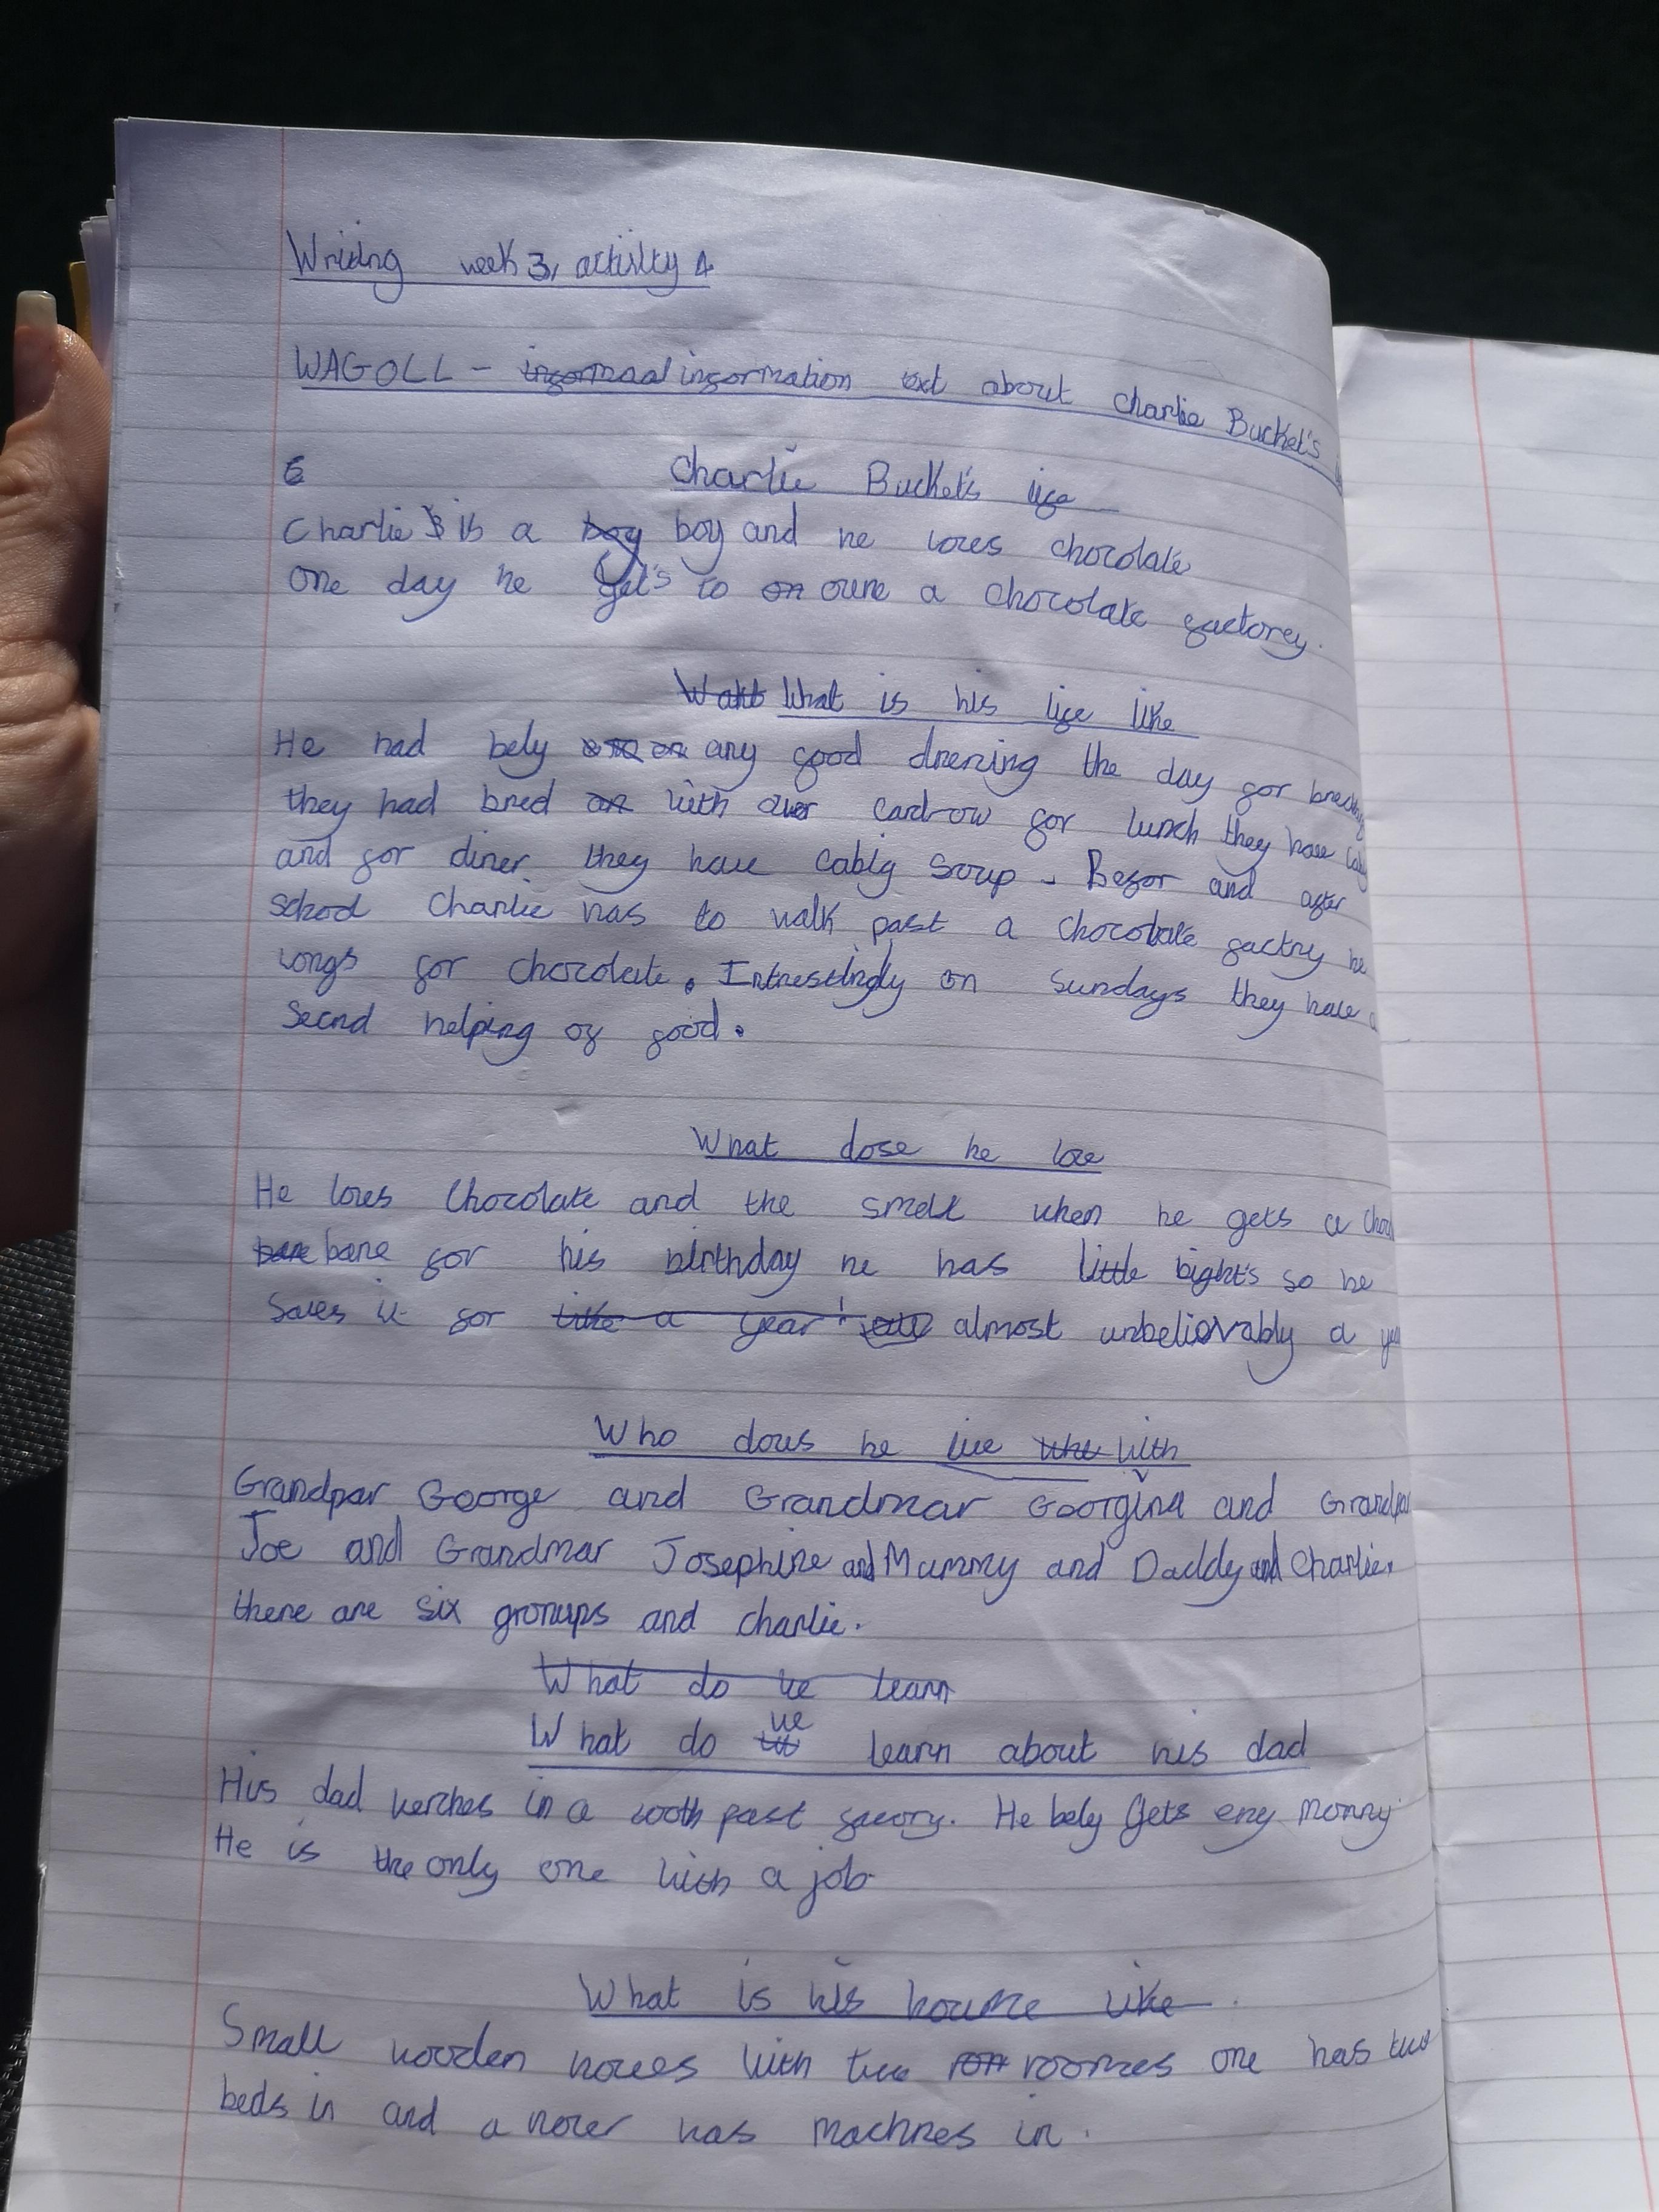 Writing week 3, activity 4
WAGOLL - information text about Charlie Bucket's
Charlie Bucket's life
Charlie is a boy and he loves chocolate
One day he get's to oune a chocolate factorey.
What is his life like
He had bely any food drering the day for
they had bred with card-ow for lunch they have
and for diner they have cabig soup. Befor and after
school Charlie has to walk past a chocolate factry he
longs for chocolate. Intrestingly on Sundays they have a
second helping of food.
What dose he love
He loves chocolate and the smell when he gets a
bare for his birthday he has little bight's so he
saves it for almost unbelievably a
Who dous he live with
Grandpar George and Grandmar Georgina and Grandpar
Joe and Grandmar Josephine and Mummy and Daddy and Charlie.
there are six gronups and charlie.
What do he learn
What do we learn about his dad
His dad werches in a tooth past facory. He bely gets eny monny
He is the only one with a job.
What is his hourse like
Small wooden houes with two roomes one has two
beds in and a nover has machnes in.